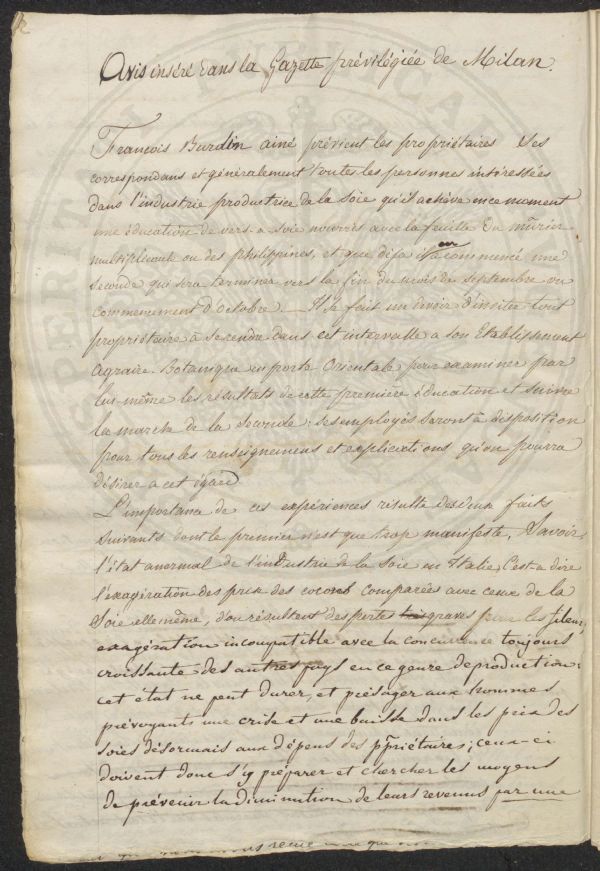 Avis inséré dans la Gazette prévilégiée de Milan.
François Burdin ainé prévient les propriétaires ses
correspondans et généralement toutes les personnes intéressées
dans l'industrie productrice de la soie qu'il achève en ce moment
une éducation de vers à soie nourris avec la feuille du mûrier
multicaule ou des philippines, et que déja il a commencé une
seconde qui sera terminée vers la fin du mois de septembre ou
commencement d'octobre. Il se fait un devoir d'inviter tout
propriétaire à se rendre dans cet intervalle a son Etablissement
Agraire-Botanique en porte Orientale pour examiner par
lui-même les résultats de cette première éducation et suivre
la marche de la seconde: ses employés seront à disposition
pour tous les renseignemens et explications qu'on pourra
désirer a cet égard
L'importance de ces expériences résulte des deux faits
suivants dont le premier n'est que trop manifeste, Savoir,
l'état anormal de l'industrie de la soie en Italie, c'est a dire
l'exagération des prix des cocons comparées avec ceux de la
Soie elle même, d'où résultent des pertes très graves pour les fileurs,
exagération incompatible avec la concurrence toujours
croissante des autres pays en ce genre de production:
cet état ne peut durer, et présager aux hommes
prévoyants une crise et une baisse dans les prix des
soies désormais aux dépens des ppriétaires; ceux-ci
doivent donc s'y préparer et chercher les moyens
de prévenir la diminution de leurs revenus par une